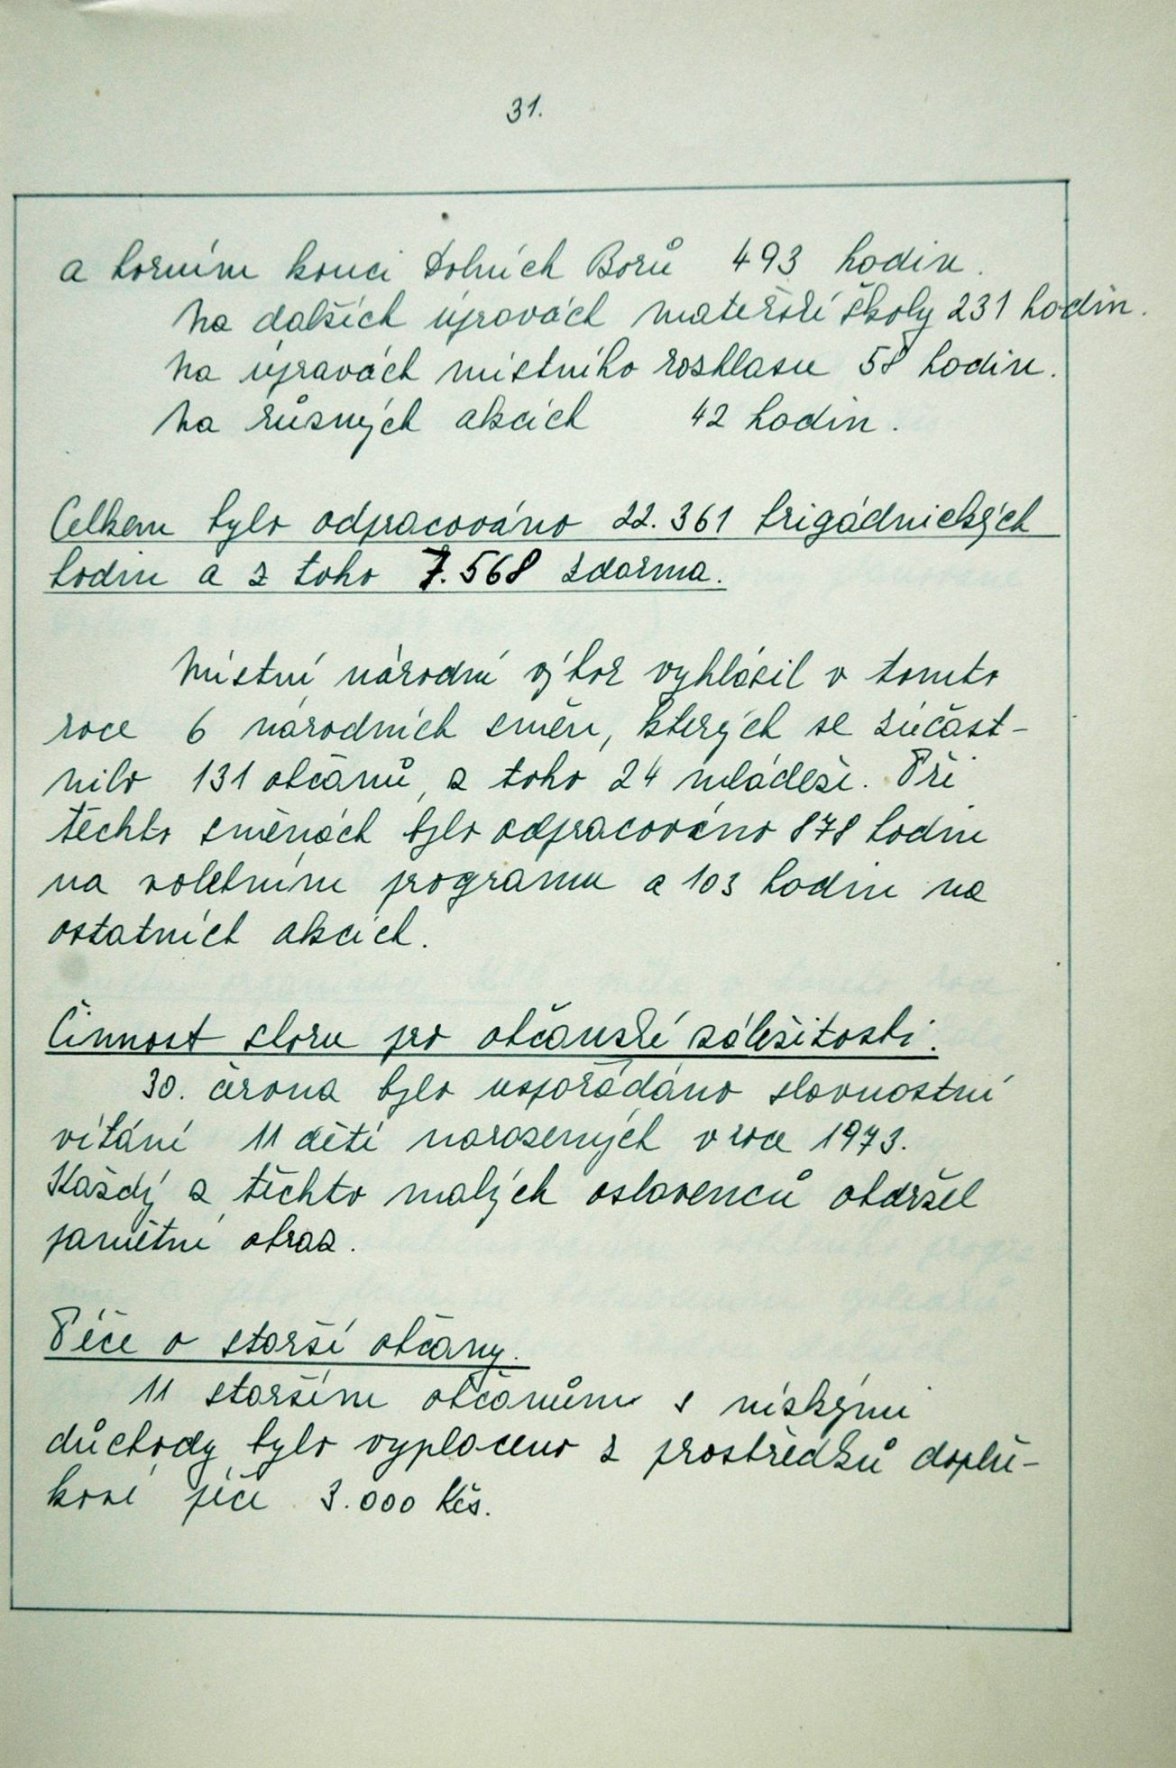 31.
a horním konci Dolních Borů 493 hodin.
Na dalších úpravách mateřské školy 231 hodin.
Na úpravách místního rozhlasu 58 hodin.
Na různých akcích 42 hodin.
Celkem bylo odpracováno 22.361 brigádnických
hodin a z toho 7.568 zdarma.
Místní národní výbor vyhlásil v tomto
roce 6 národních směn, kterých se zúčast-
nilo 131 občanů, z toho 24 mládeže. Při
těchto směnách bylo odpracováno 878 hodin
na volebním programu a 103 hodin na
ostatních akcích.
Činnost sboru pro občanské záležitosti.
30. června bylo uspořádáno slavnostní
vítání 11 dětí narozených v roce 1973.
Každý z těchto malých oslavenců obdržel
pamětní obraz.
Péče o starší občany.
11 starším občanům s nízkými
důchody bylo vyplaceno z prostředků doplň-
kové péče 3.000 Kčs.